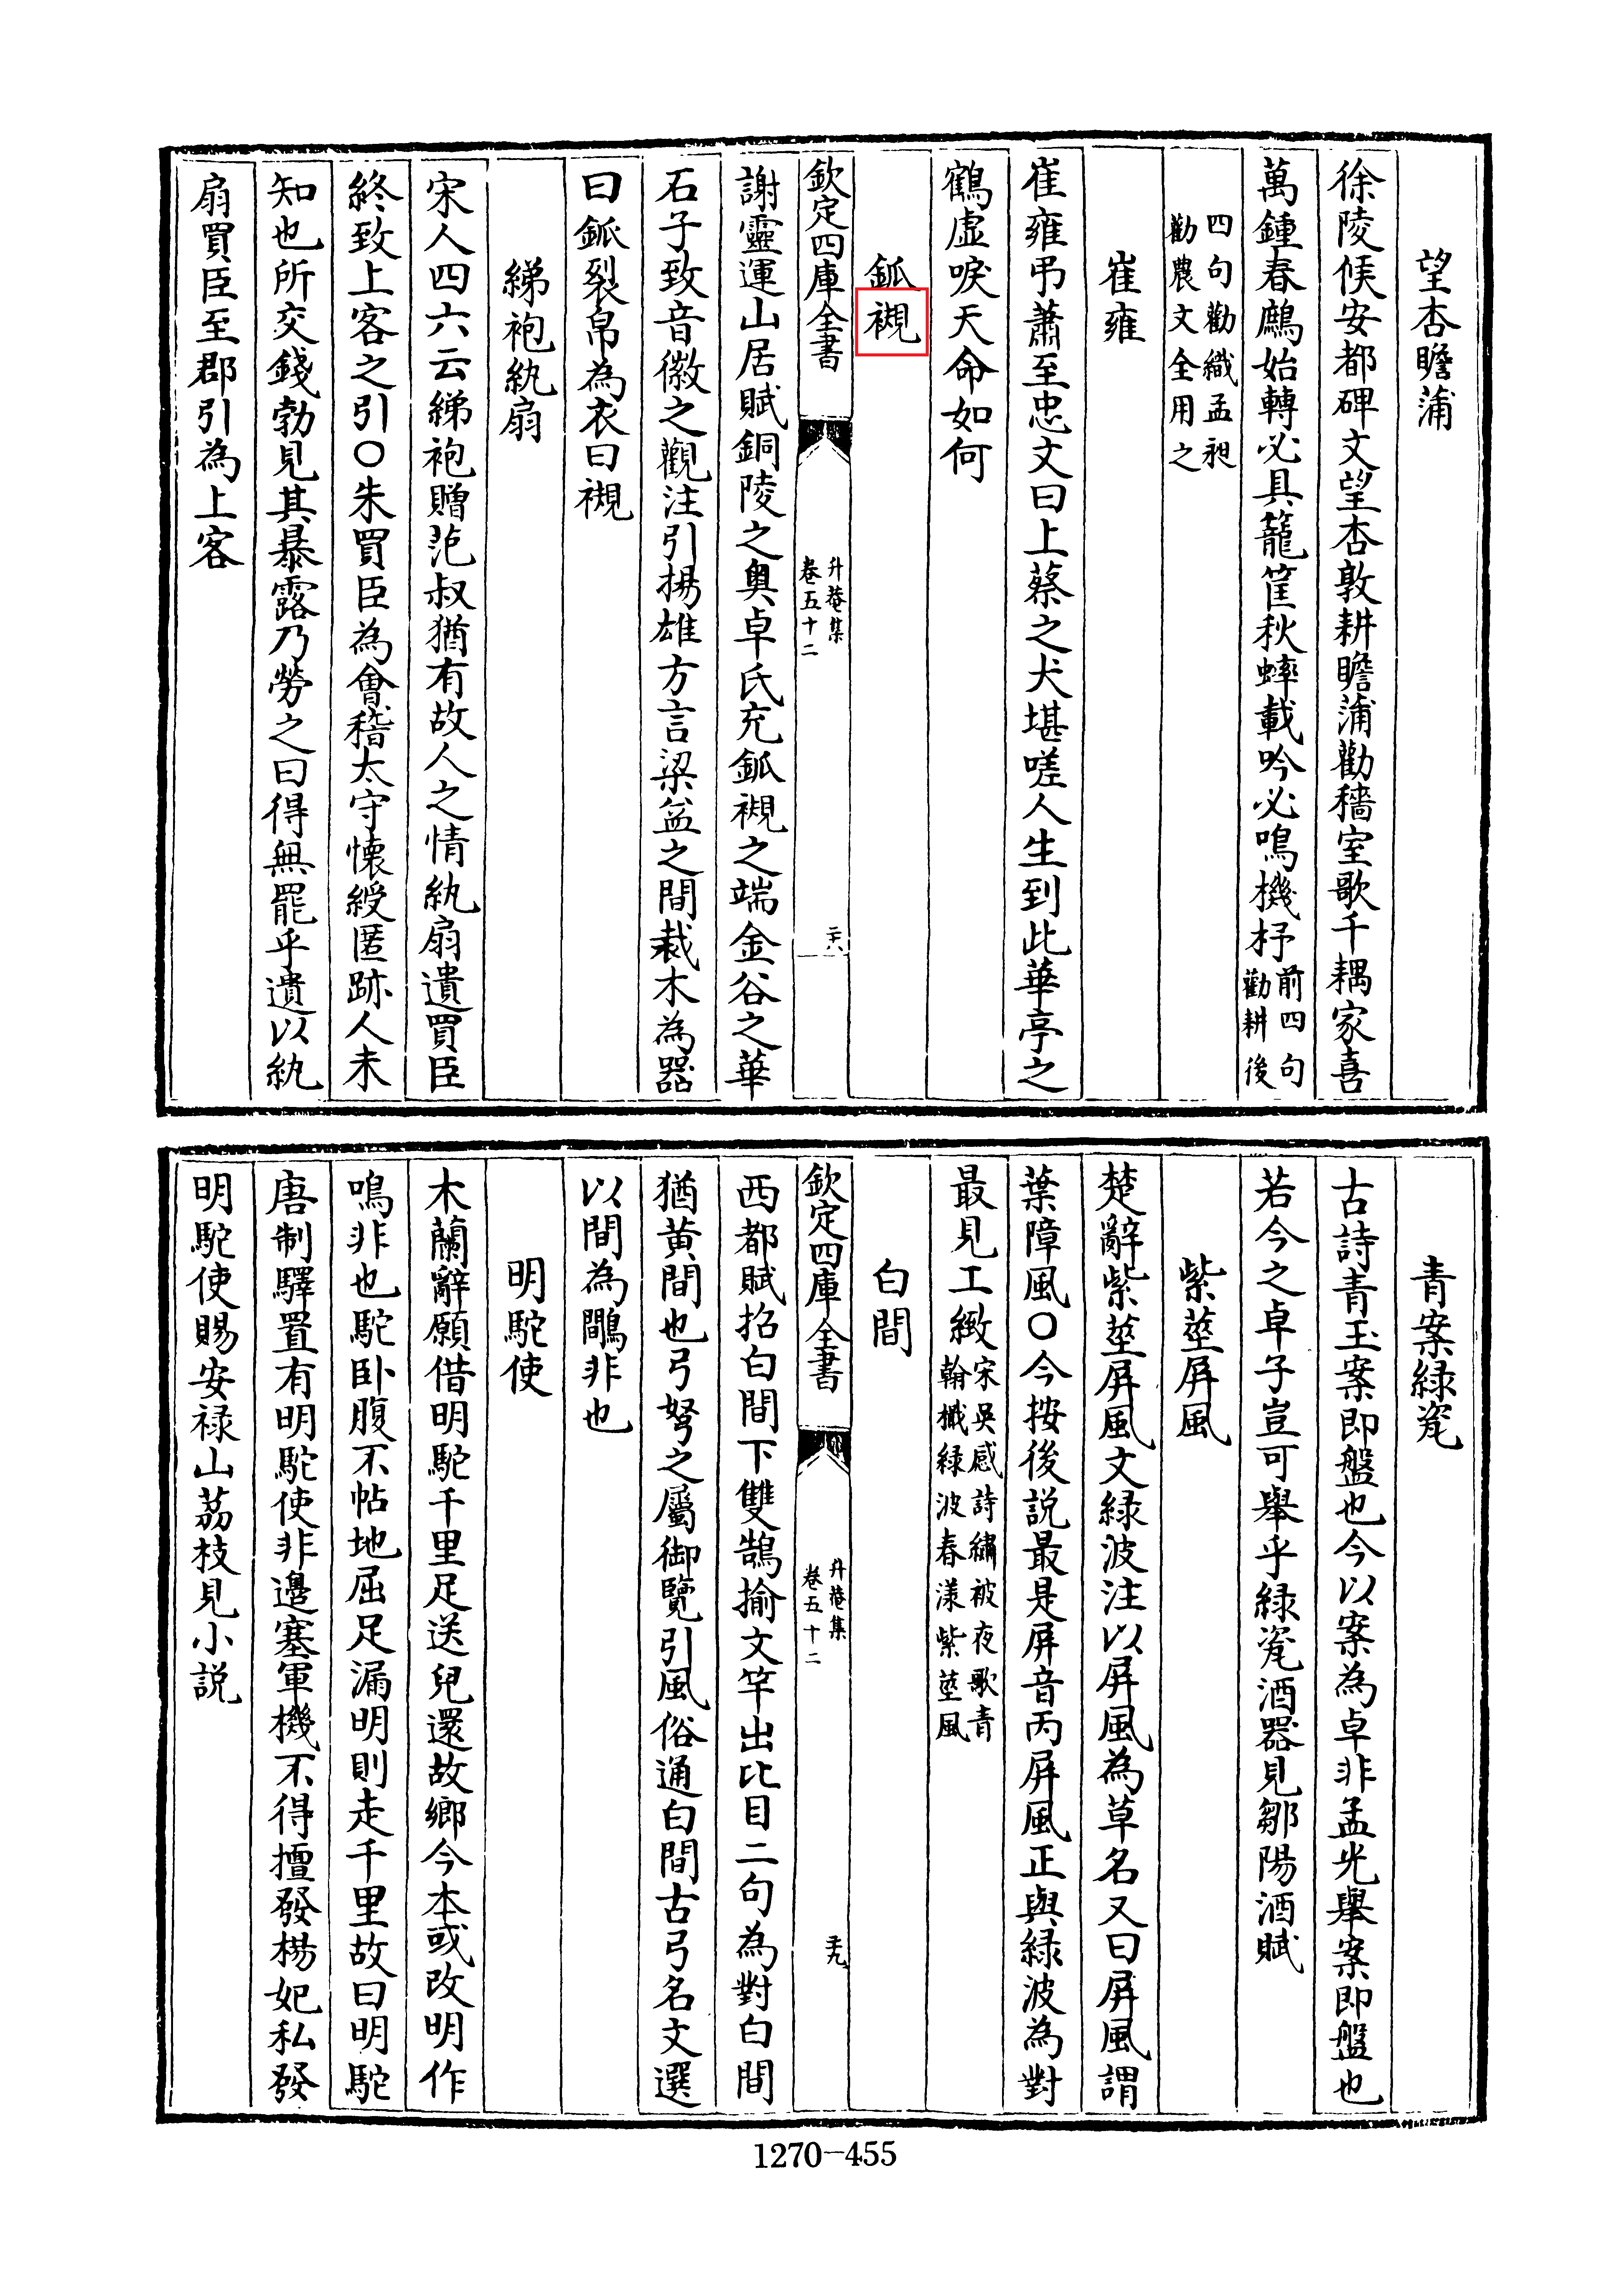 望杏瞻蒲
徐陵候安都碑文望杏敦耕瞻蒲勸穡室歌千耦家喜
萬鍾春鷓始轉必具籠筐秋蟀載吟必鳴機杼前四句勸耕後
四句勸織孟昶勸農文全用之
崔雍
崔雍弔蕭至忠文曰上蔡之犬堪嗟人生到此華亭之
鶴虛唳天命如何
鈲
欽定四庫全書
升菴集
卷五十二
二十八
謝靈運山居賦銅陵之奧卓氏充鈲之端金谷之華
石子致音徽之觀注引揚雄方言梁益之間裁木為器
曰鈲裂帛為衣曰
綈袍紈扇
宋人四六云綈袍贈范叔猶有故人之情紈扇遺買臣
終致上客之引〇朱買臣為會稽太守懷綬匿跡人未
知也所交錢勃見其暴露乃勞之曰得無罷乎遺以紈
扇買臣至郡引為上客
青案緑瓷
古詩青玉案即盤也今以案為卓非孟光舉案即盤也
若今之卓子豈可舉乎緑瓷酒器見鄒陽酒賦
紫莖屏風
楚辭紫莖屏風文緑波注以屏風為草名又曰屏風謂
葉障風〇今按後説最是屏音丙屏風正與緑波為對
最見工緻宋吳感詩繡被夜歌青翰檝緑波春漾紫莖風
白間
欽定四庫全書
升菴集
卷五十二
二十九
西都賦招白間下雙鵠揄文竿出比目二句為對白間
猶黃間也弓弩之屬御覽引風俗通白間古弓名文選
以間為鷴非也
明駝使
木蘭辭願借明駝千里足送兒還故鄉今本或改明作
鳴非也駝卧腹不帖地屈足漏明則走千里故曰明駝
唐制驛置有明駝使非邊塞軍機不得擅發楊妃私發
明駝使賜安禄山荔枝見小説
1270-455